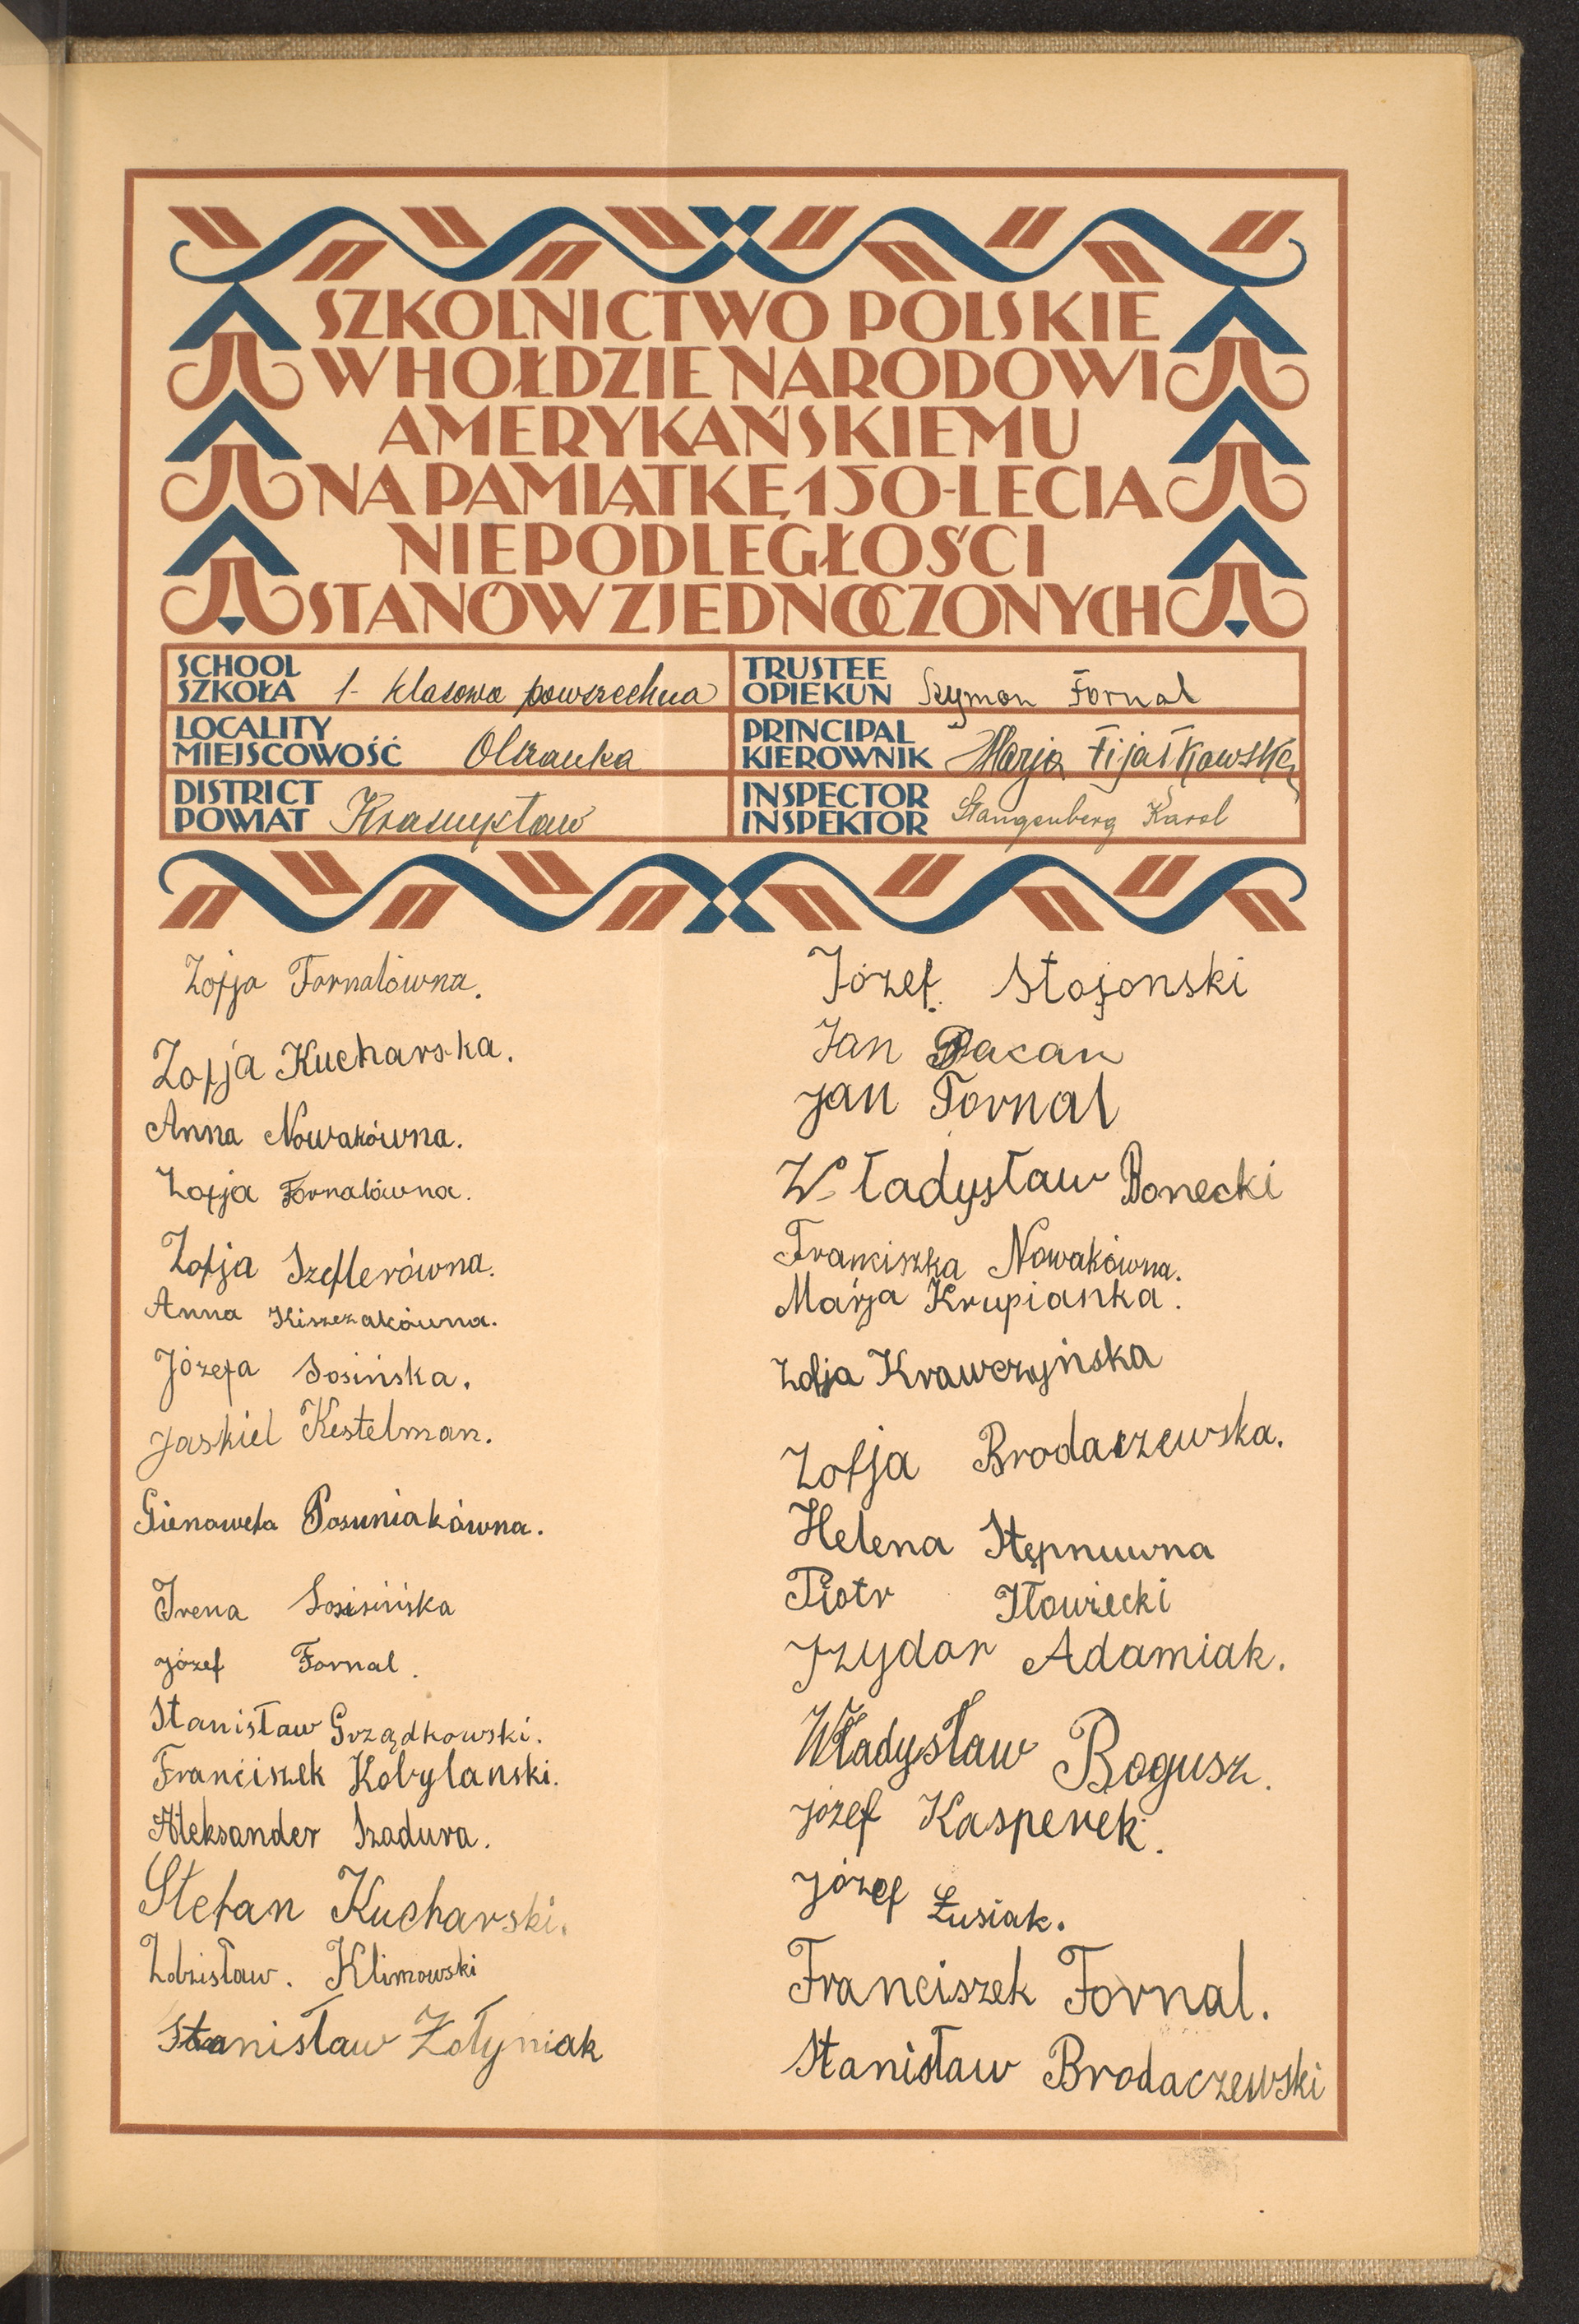 SZKOLNICTWO POLSKIE
W HOŁDZIE NARODOWI
AMERYKAŃSKIEMU
NA PAMIĄTKĘ 150-LECIA
NIEPODLEGŁOŚCI
STANÓW ZJEDNOCZONYCH
SCHOOL
SZKOŁA 1- klasowa powszechna
TRUSTEE
OPIEKUN Szymon Fornal
LOCALITY
MIEJSCOWOŚĆ Olszanka
PRINCIPAL
KIEROWNIK Marja Fijałkowska
DISTRICT
POWIAT Krasnystaw
INSPECTOR
INSPEKTOR Stangenberg Karol
Zofja Fornalówna.
Zofja Kucharska.
Anna Nowakówna.
Zofja Fornalówna.
Zofja Szeflerówna.
Anna Kiszczakówna.
Józefa Sosińska.
Jaskiel Kestelman.
Gienowefa Posuniakówna.
Irena Sosisińska
Józef Fornal.
Stanisław Grządkowski.
Franciszek Kobylanski.
Aleksander Szadura.
Stefan Kucharski.
Zdzisław. Klimowski
Stanisław Żołyniak
Józef. Stojonski
Jan Pacan
Jan Fornal
Władysław Bonecki
Franciszka Nowakówna.
Marja Krupianka.
Zofja Krawczyńska
Zofja Brodaczewska.
Helena Stępnuwna
Piotr Iłowiecki
Izydor Adamiak.
Władysław Bogusz.
Józef Kasperek.
Józef Łusiak.
Franciszek Fornal.
Stanisław Brodaczewski